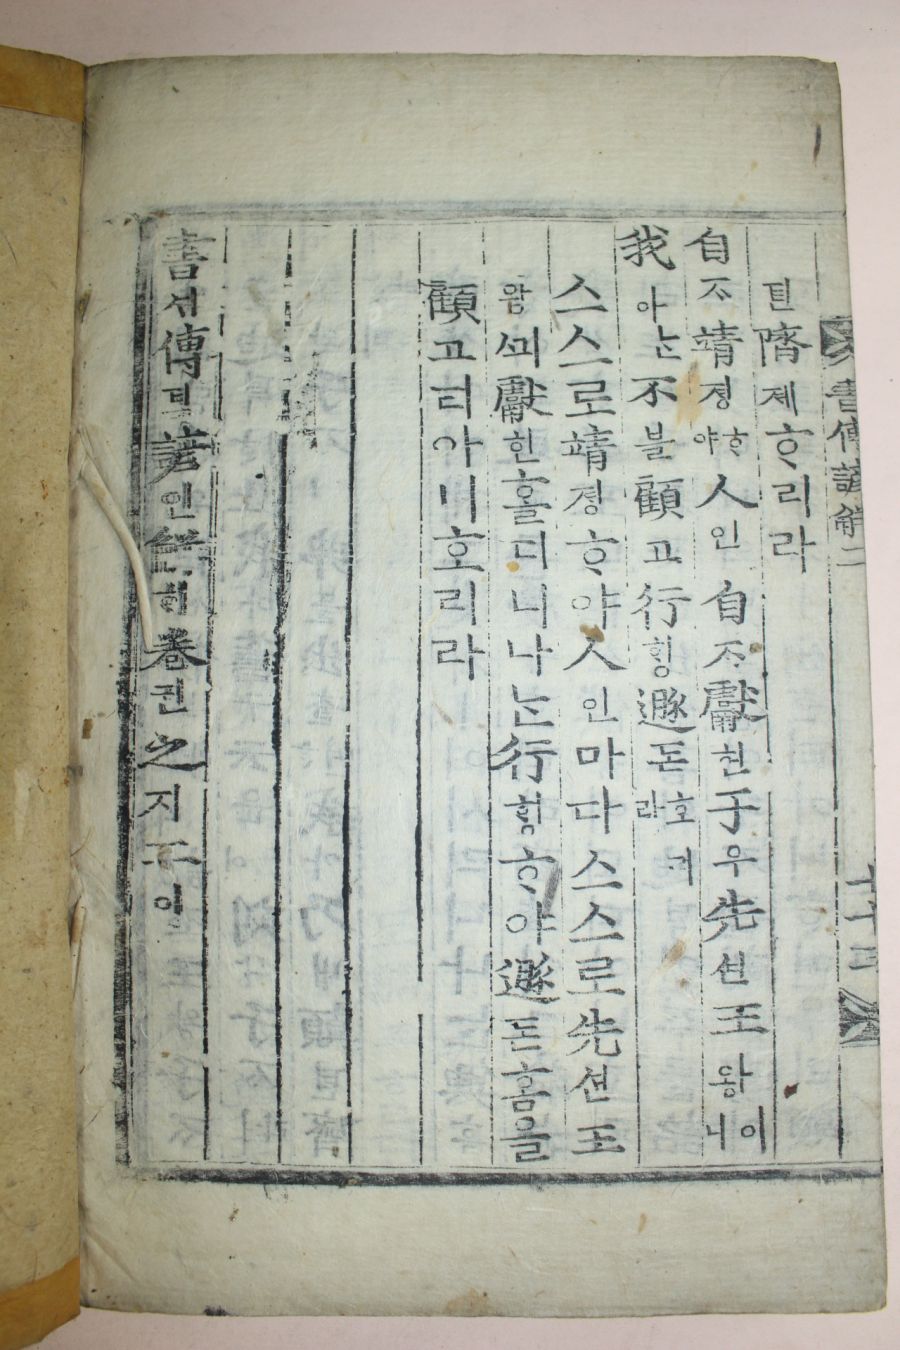 書傳諺解二
뎐隮졔ᄒᆞ리라
自ᄌᆞ靖졍ᄒᆞ야人인自ᄌᆞ獻헌于우先션王왕이니
我아ᄂᆞᆫ不블顧고行ᄒᆡᆼ遯돈호리라
스스로靖졍ᄒᆞ야人인마다스스로先션王
왕ᄭᅴ獻헌홀디니나ᄂᆞᆫ行ᄒᆡᆼᄒᆞ야遯돈홈을
顧고티아니호리라
書셔傳뎐諺언解ᄒᆡ卷권之지二이